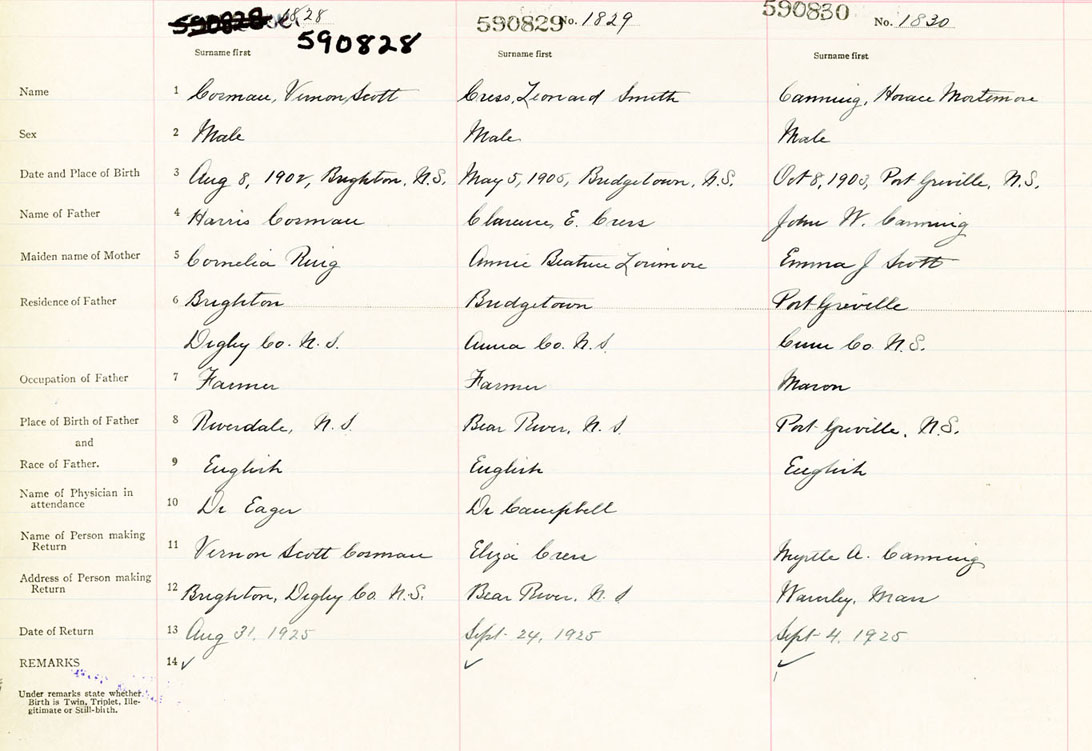 590828 1828 590829 No. 1829 590830 No. 1830
590828
Surname first Surname first Surname first
Name 1 Cosman, Vernon Scott Cress, Leonard Smith Canning, Horace Mortimore
Sex 2 Male Male Male
Date and Place of Birth 3 Aug 8, 1902, Brighton, N.S. May 5, 1905, Bridgetown, N.S. Oct 8, 1903, Port Greville, N.S.
Name of Father 4 Harris Cosman Clarence E. Cress John W. Canning
Maiden name of Mother 5 Cornelia Ring Annie Beatrice Lorimore Emma J Scott
Residence of Father 6 Brighton Bridgetown Port Greville
Digby Co. N.S. Anna Co. N.S. Cum Co. N.S.
Occupation of Father 7 Farmer Farmer Mason
Place of Birth of Father 8 Riverdale, N.S. Bear River, N.S. Port Greville, N.S.
and
Race of Father. 9 English English English
Name of Physician in
attendance 10 Dr Eager Dr Campbell
Name of Person making
Return 11 Vernon Scott Cosman Eliza Cress Myrtle A. Canning
Address of Person making
Return 12 Brighton, Digby Co. N.S. Bear River, N.S. Waverley, Mass
Date of Return 13 Aug 31, 1925 Sept 24, 1925 Sept 4, 1925
REMARKS 14 ✓ ✓ ✓
Under remarks state whether
Birth is Twin, Triplet, Ille-
gitimate or Still-birth.